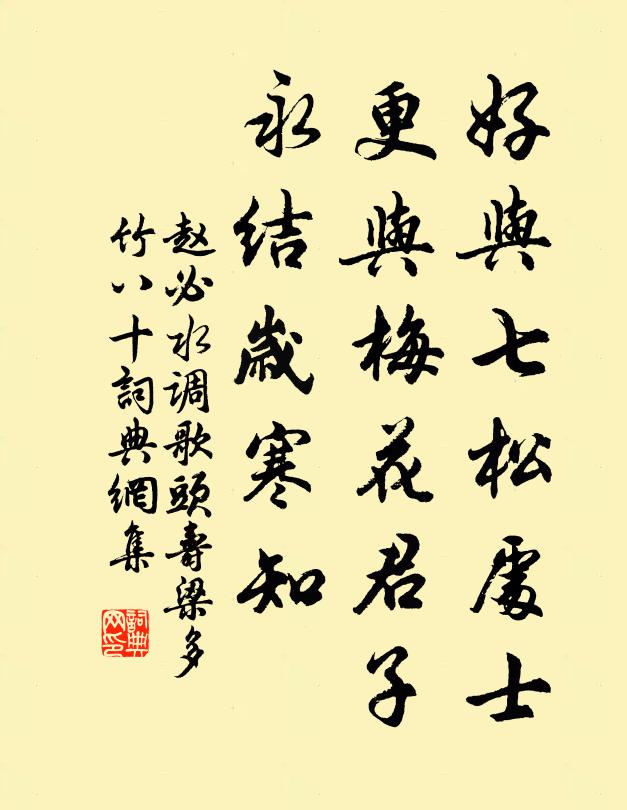 好與七松處士
更與梅花君子
永結歲寒知
赵必水调歌頭壽梁多
竹八十詞典網集
詞典网印